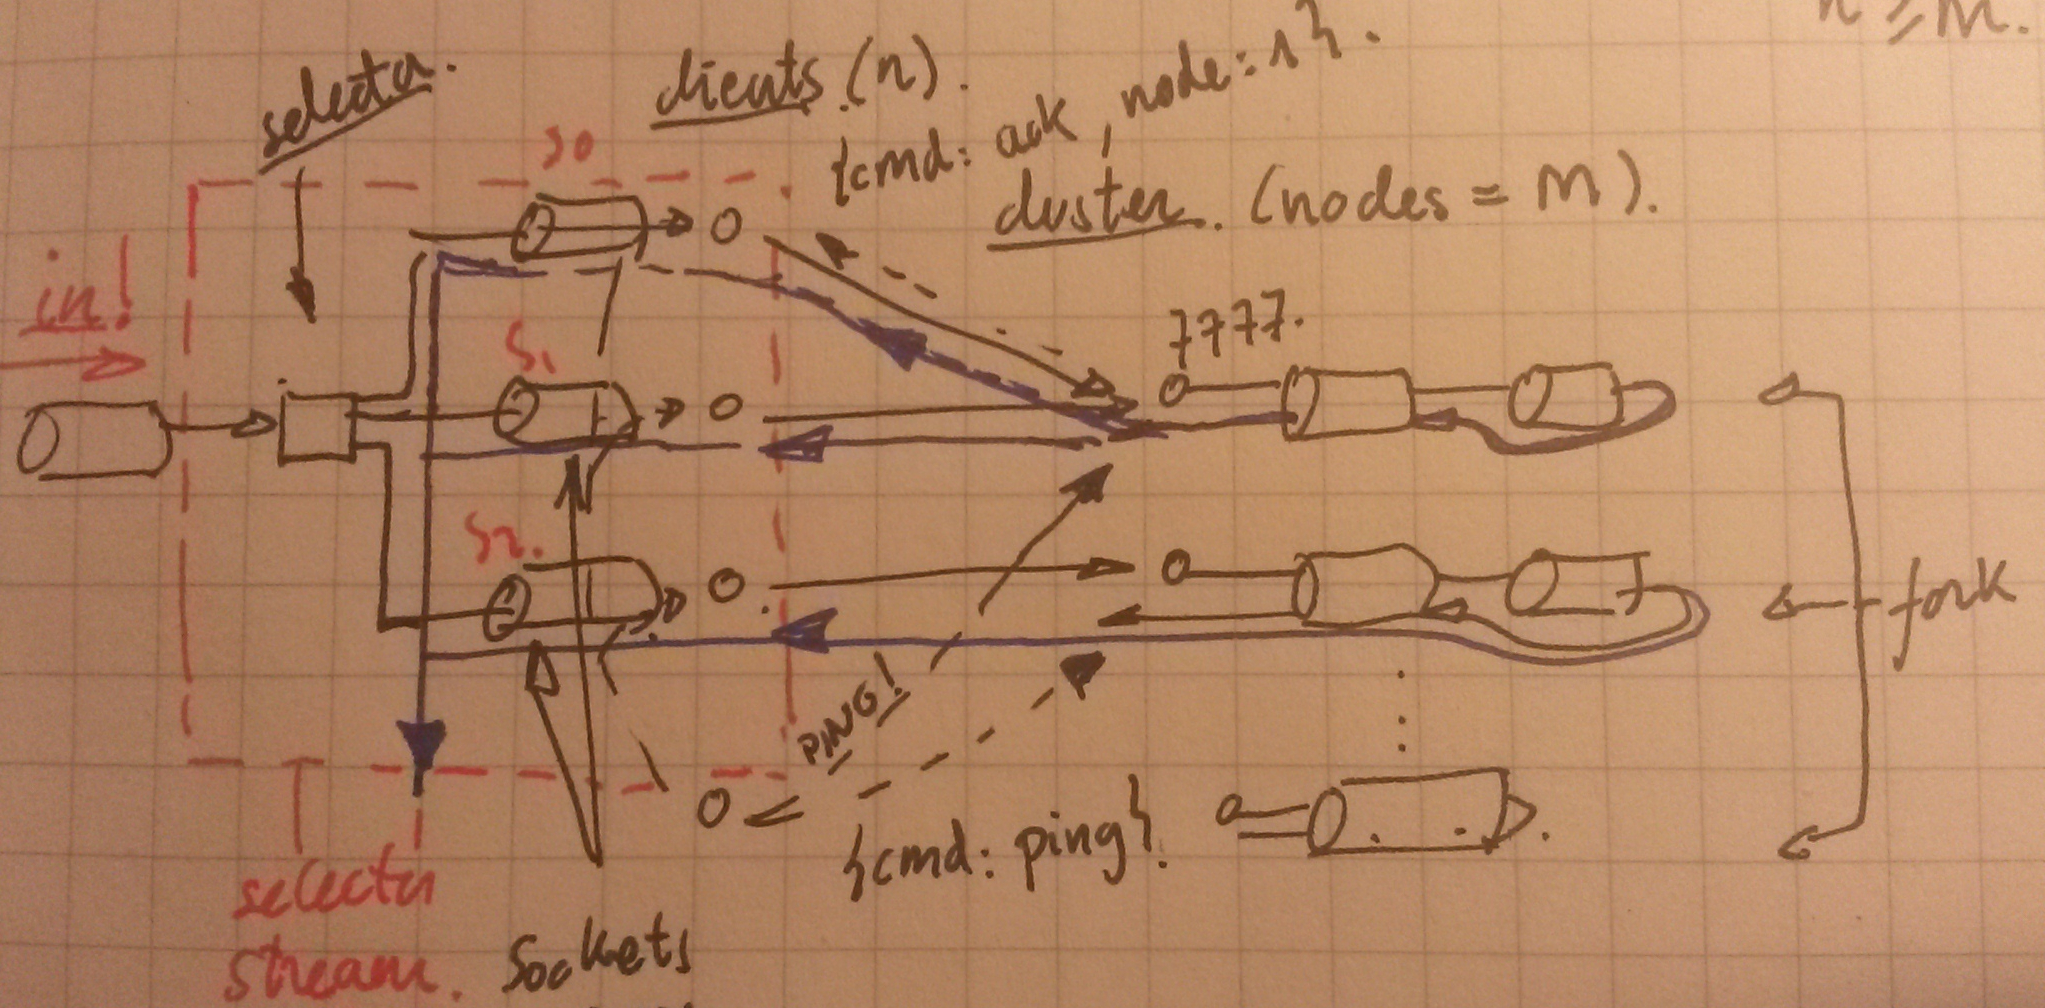 n ≥ m.
selector.
clients (n).
{cmd: ack, node: 1}.
cluster. (nodes = m).
S0
in!
7777.
S1
S2.
fork
PING!
{cmd: ping}.
selector
stream.
Sockets